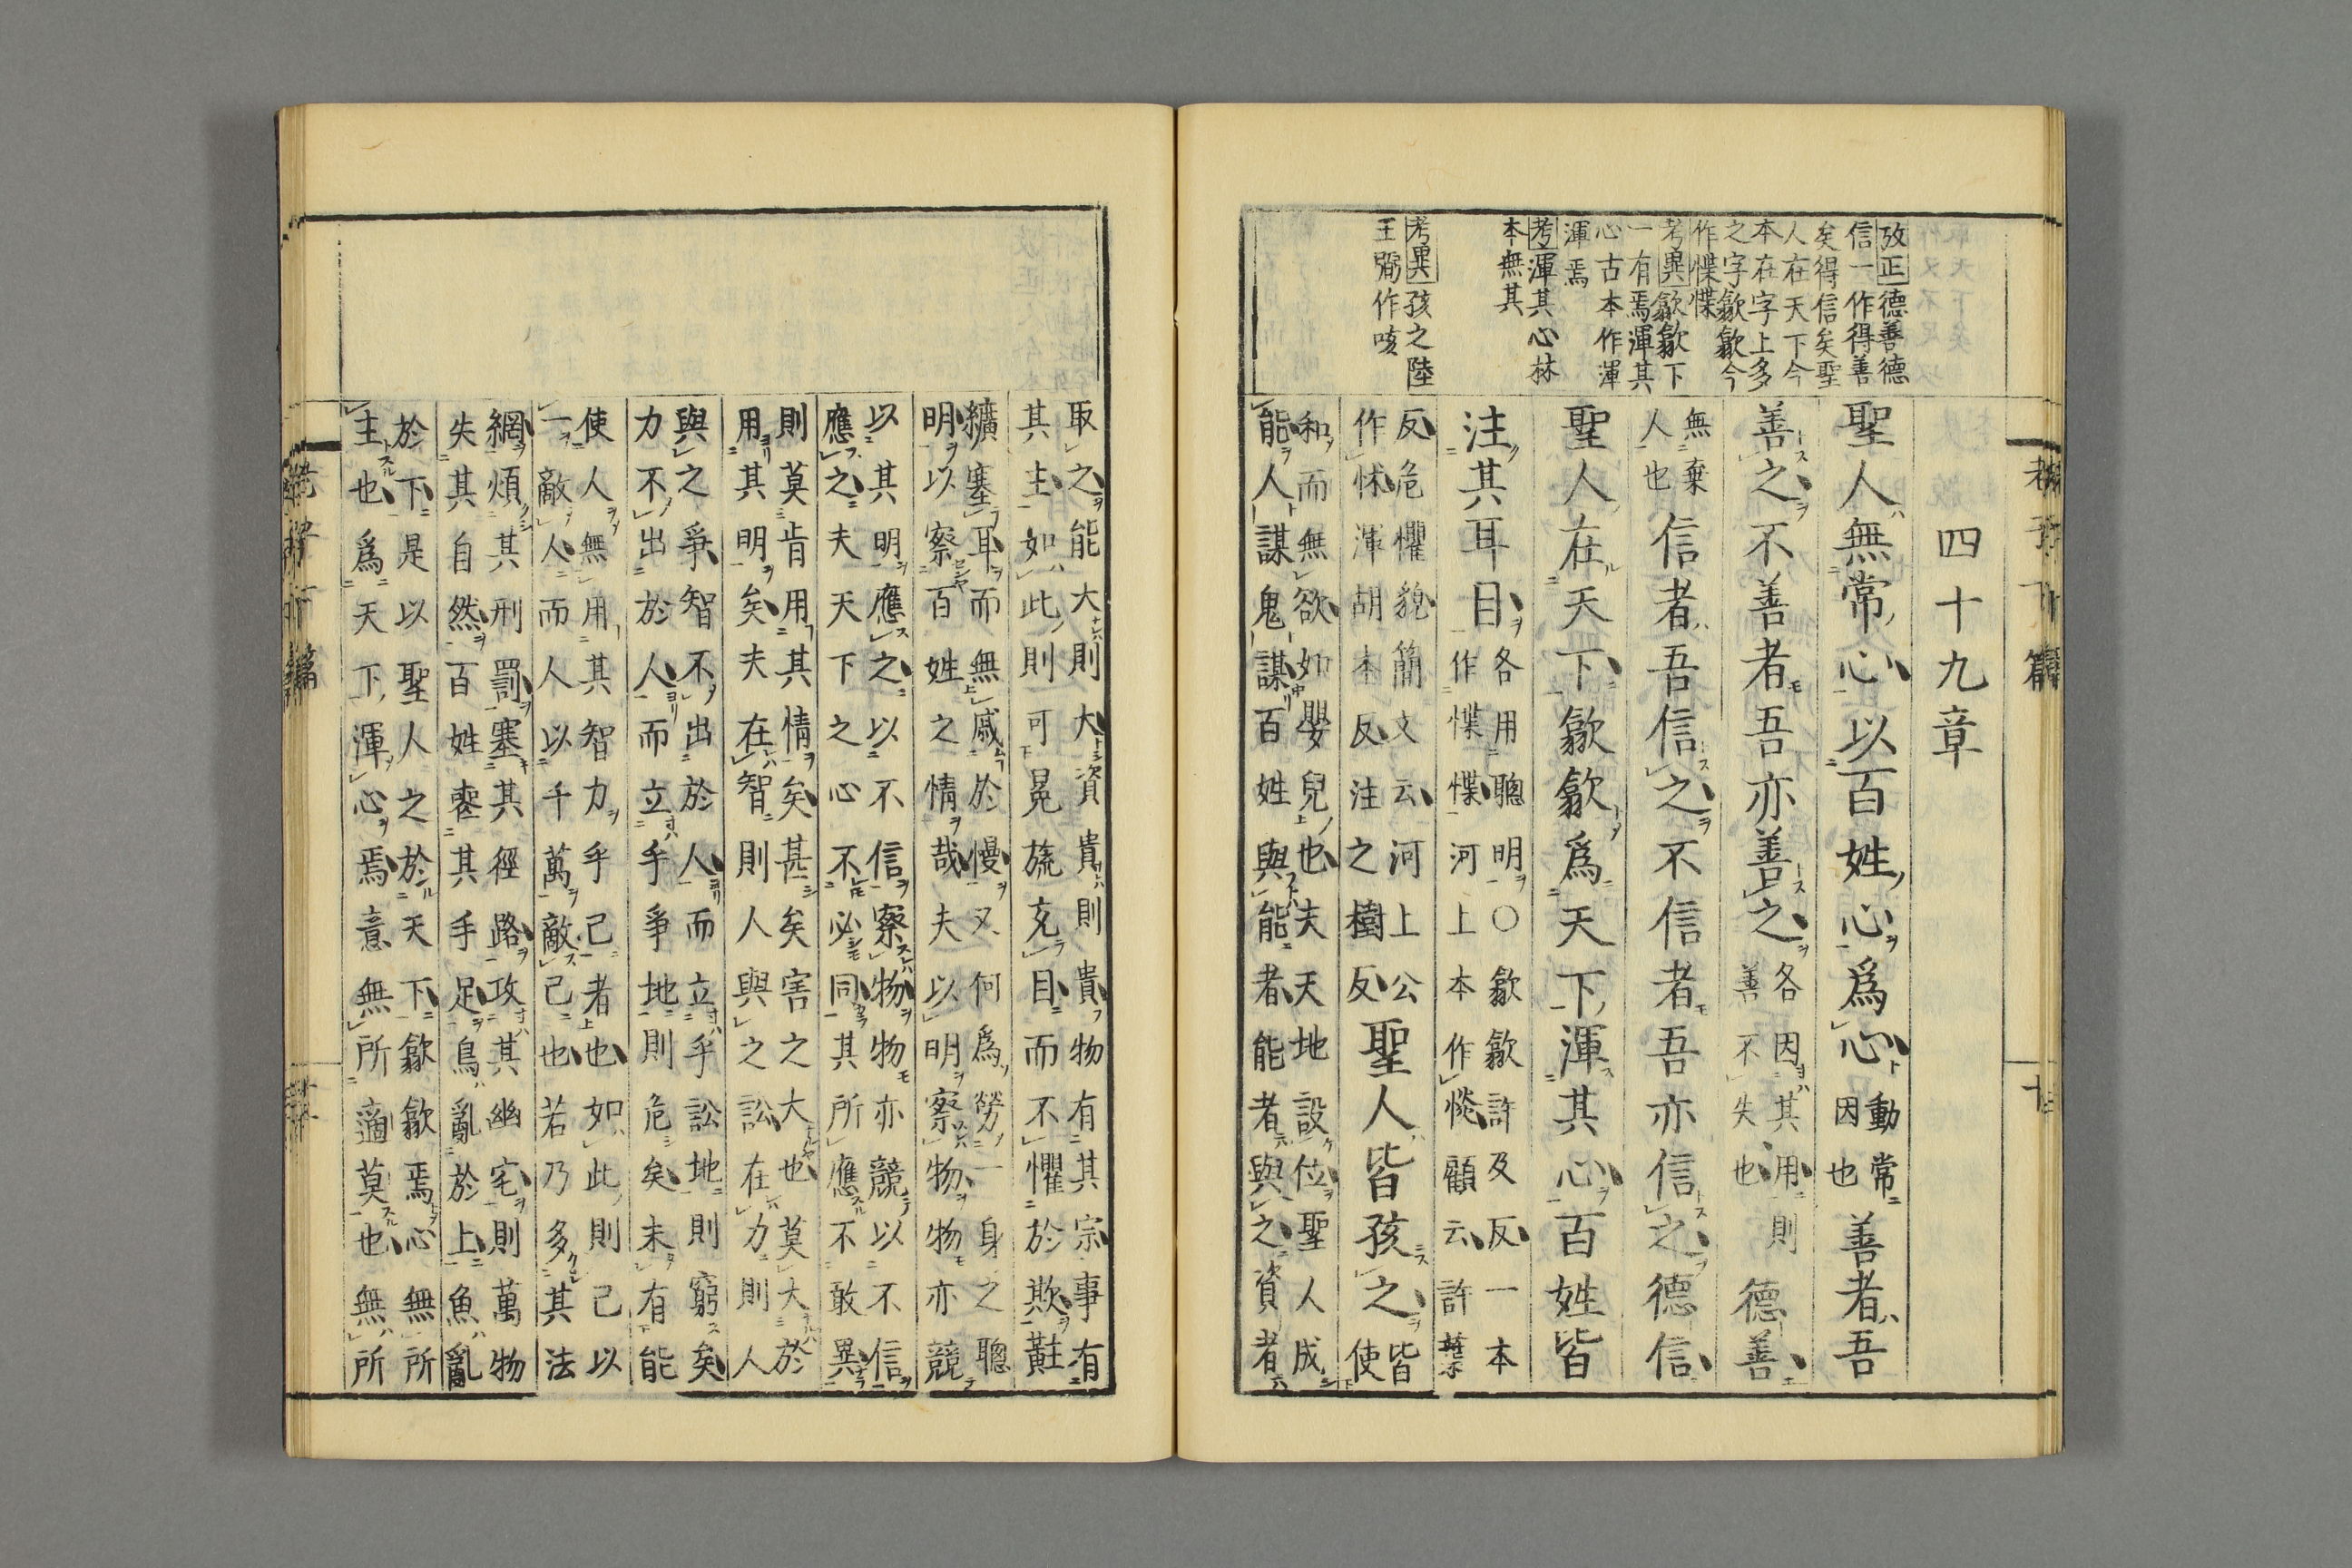 老子下篇
十二
攷正德善德
信一作得善
矣得信矣聖
人在天下今
本在字上多
之字歙歙今
作惵惵
考異歙歙下
一有焉渾其
心古本作渾
渾焉
考渾其心林
本無其
考異孩之陸
王弼作咳
四十九章
聖人無常心以百姓心爲心動常
因也善者吾
善之不善者吾亦善之各因其用則
善不失也德善
無棄
人也信者吾信之不信者吾亦信之德信
聖人在天下歙歙爲天下渾其心百姓皆
注其耳目各用聰明〇歙歙許及反一本
作惵惵河上本作惔顧云許葉
反危懼貌簡文云河上公
作怵渾胡本反注之樹反聖人皆孩之皆
使
和而無欲如嬰兒也夫天地設位聖人成
能人謀鬼謀百姓與能者能者與之資者
取之能大則大資貴則貴物有其宗事有
其主如此則可冕旒充目而不懼於欺黈
纊塞耳而無戚於慢又何爲勞一身之聰
明以察百姓之情哉夫以明察物物亦競
以其明應之以不信察物物亦競以不信
應之夫天下之心不必同其所應不敢異
則莫肯用其情矣甚矣害之大也莫大於
用其明矣夫在智則人與之訟在力則人
與之爭智不出於人而立乎訟地則窮矣
力不出於人而立乎爭地則危矣未有能
使人無用其智力乎己者也如此則己以
一敵人而人以千萬敵己也若乃多其法
網煩其刑罰塞其徑路攻其幽宅則萬物
失其自然百姓喪其手足鳥亂於上魚亂
於下是以聖人之於天下歙歙焉心無所
主也爲天下渾心焉意無所適莫也無所